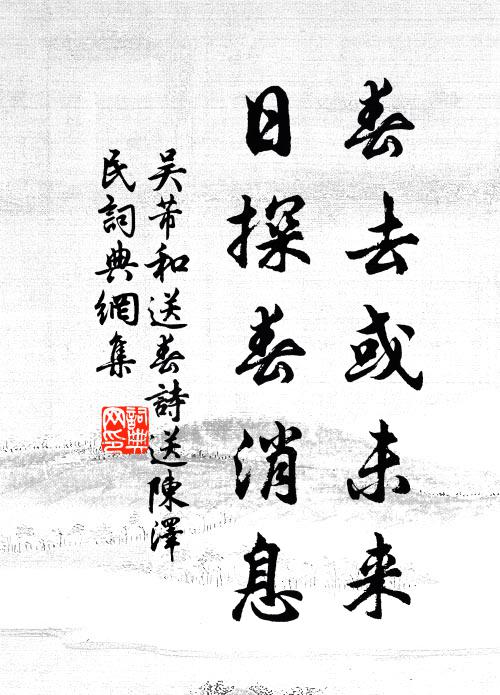 春去或未来
日探春消息
吴芾和送春詩送陳澤
民詞典網集
詞典网印